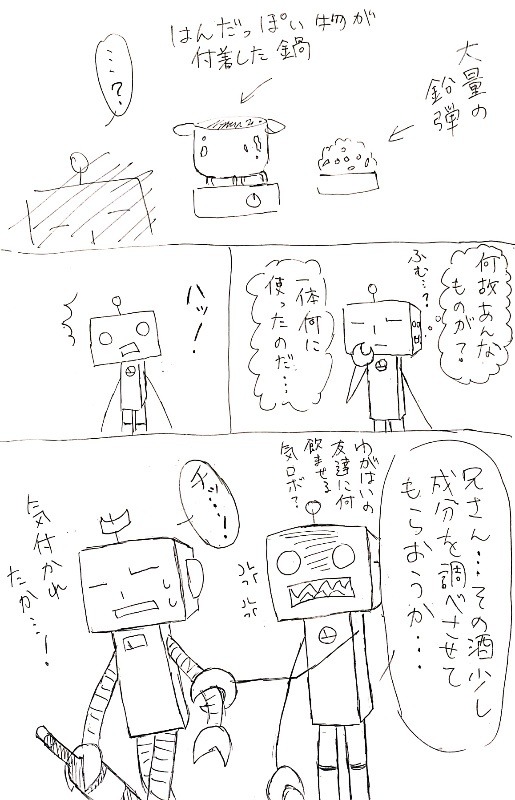 はんだっぽい物が
付着した鍋
大量の
鉛弾
…?
何故あんな
ものが?
ふむ…?
一体何に
使ったのだ…
ハッ!
兄さん…その酒少し
成分を調べさせて
もらおうか…
わがはいの
友達に何
飲ませる
気ロボ?
チッ…!
気付かれ
たか…!